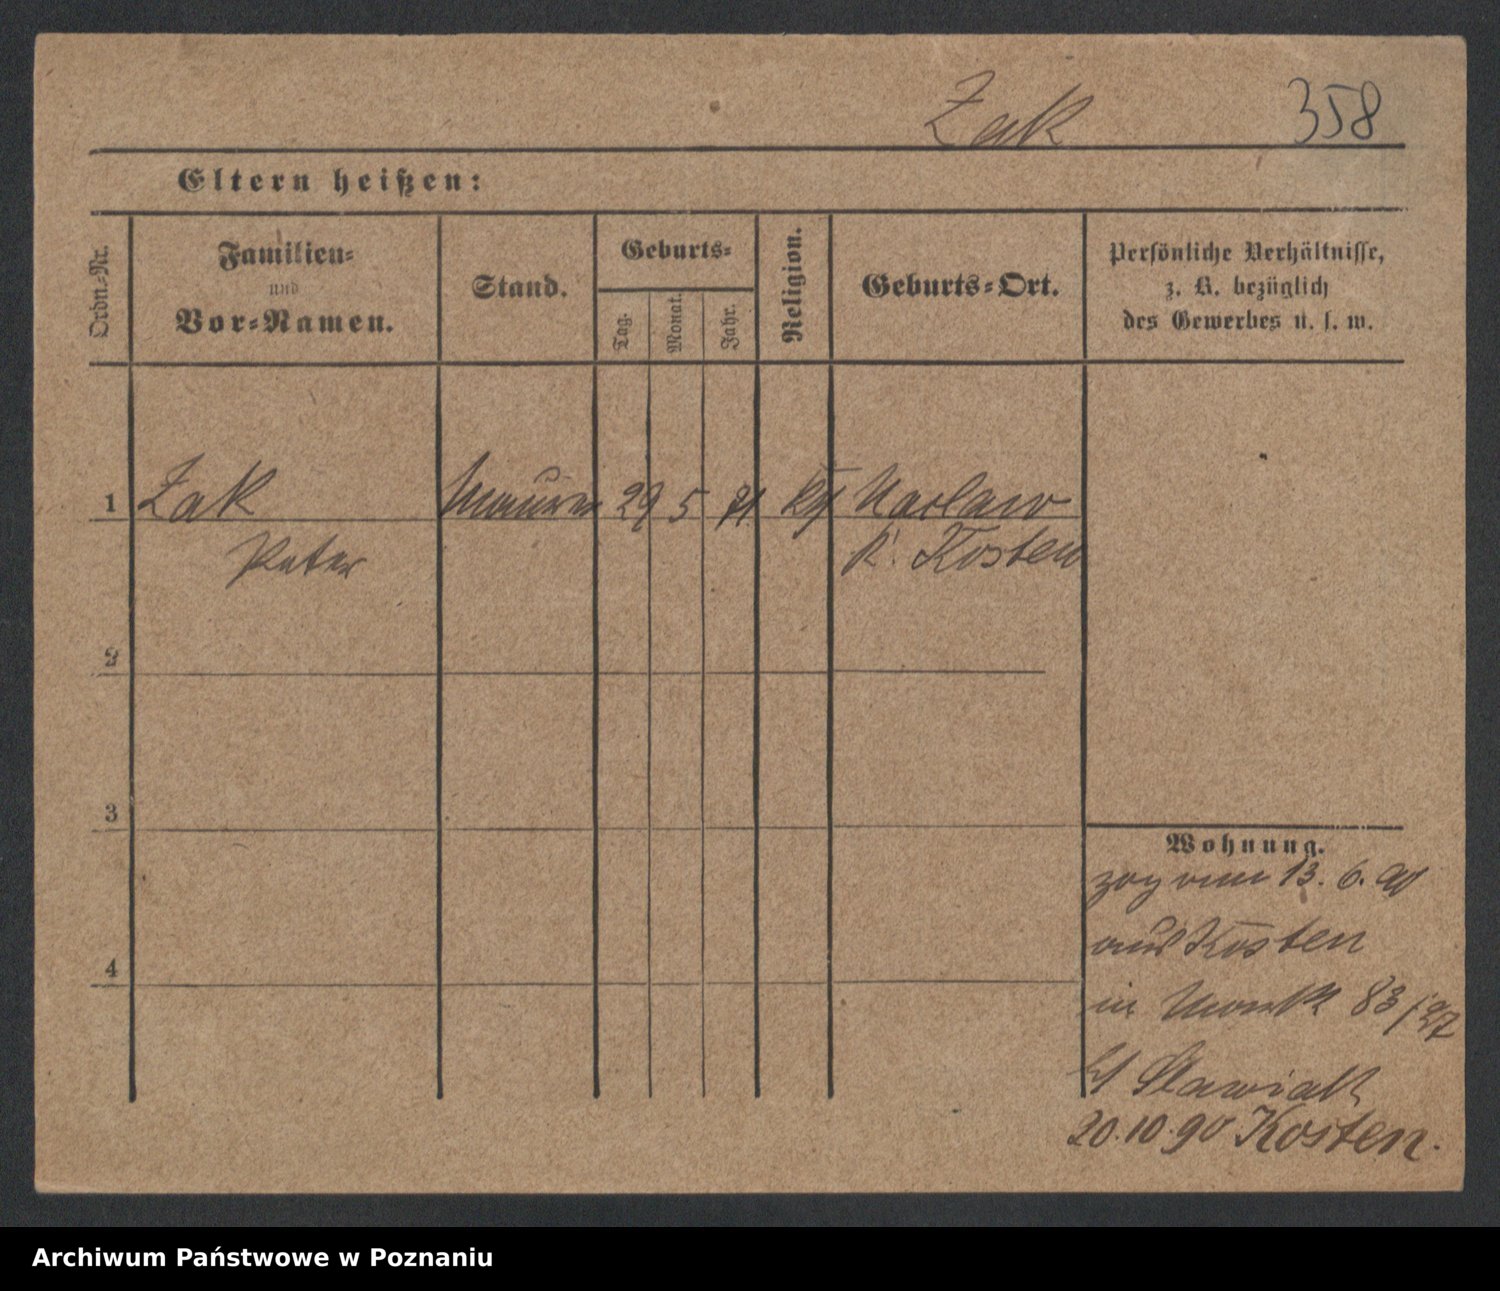 Zak 358
Eltern heißen:
Ordn.-Nr.
Familien-
und
Vor-Namen.
Stand.
Geburts-
Tag.
Monat.
Jahr.
Religion.
Geburts-Ort.
Persönliche Verhältnisse,
z. B. bezüglich
des Gewerbes u. s. w.
1 Zak Maurer 29 5 71 kth Naclaw
Peter K. Kosten
2
3
4
Wohnung.
zog vom 13. 6. 90
aus Kosten
in 83/87
bei Stawiak
20.10.90 Kosten.
Archiwum Państwowe w Poznaniu